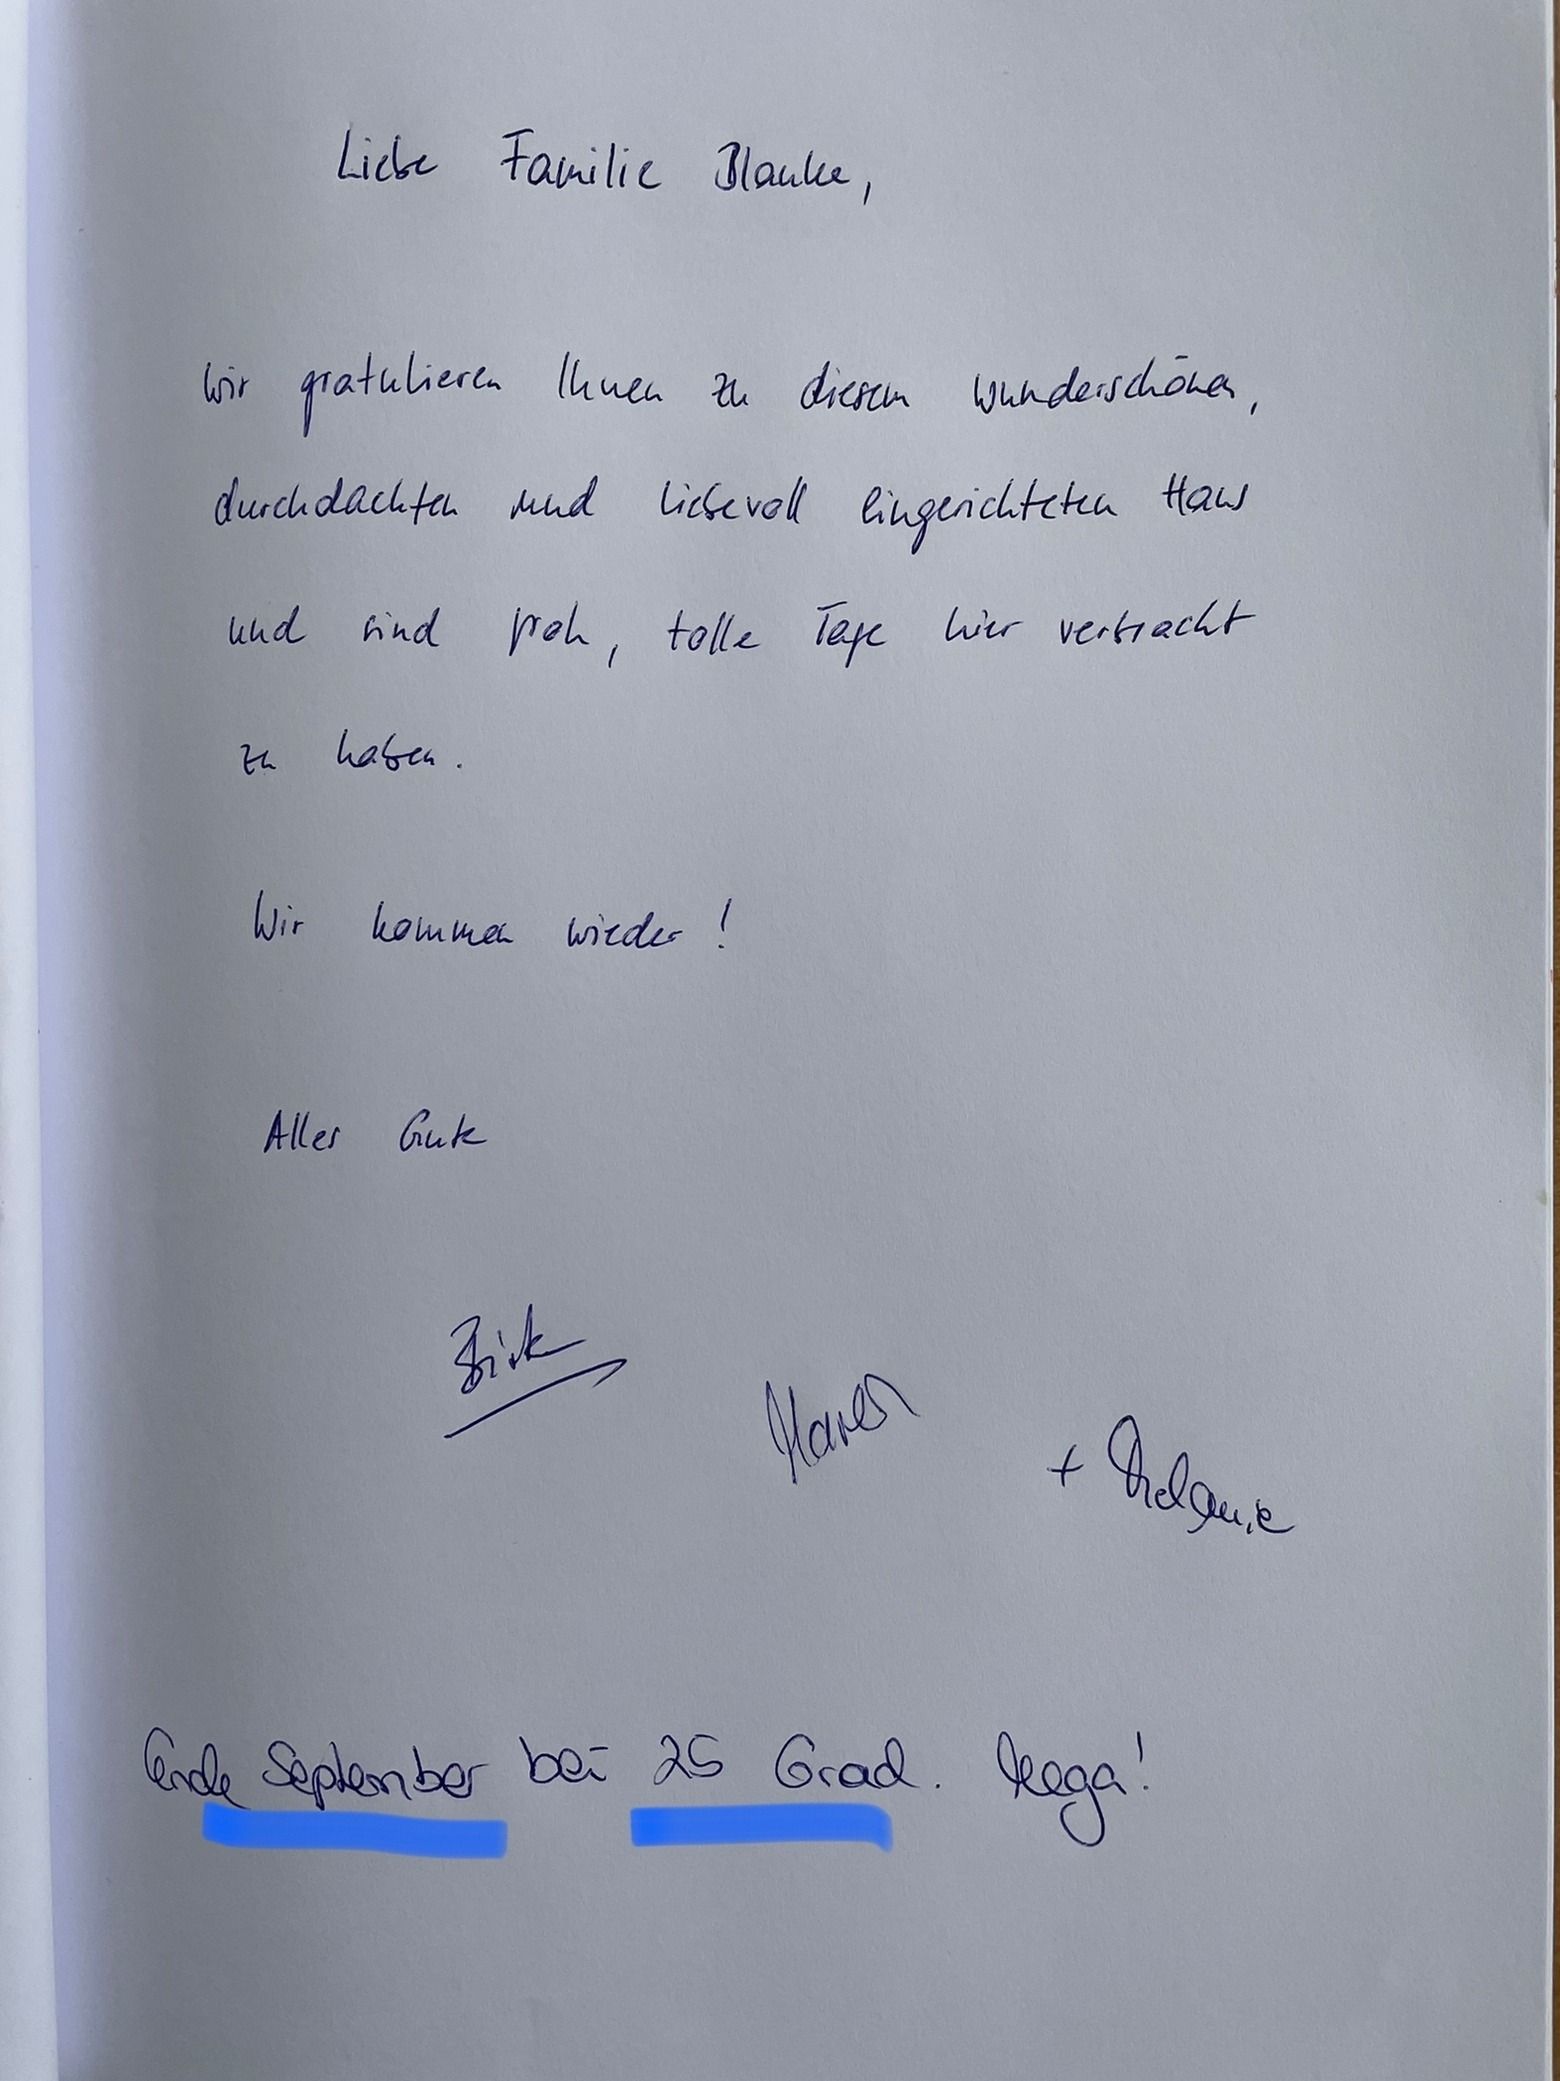 Liebe Familie Blanke,
Wir gratulieren Ihnen zu diesem wunderschönen,
durchdachten und liebevoll eingerichteten Haus
und sind froh, tolle Tage hier verbracht
zu haben.
Wir kommen wieder!
Alles Gute
Birk
Maren
+ Melanie
Ende September bei 25 Grad. Mega!